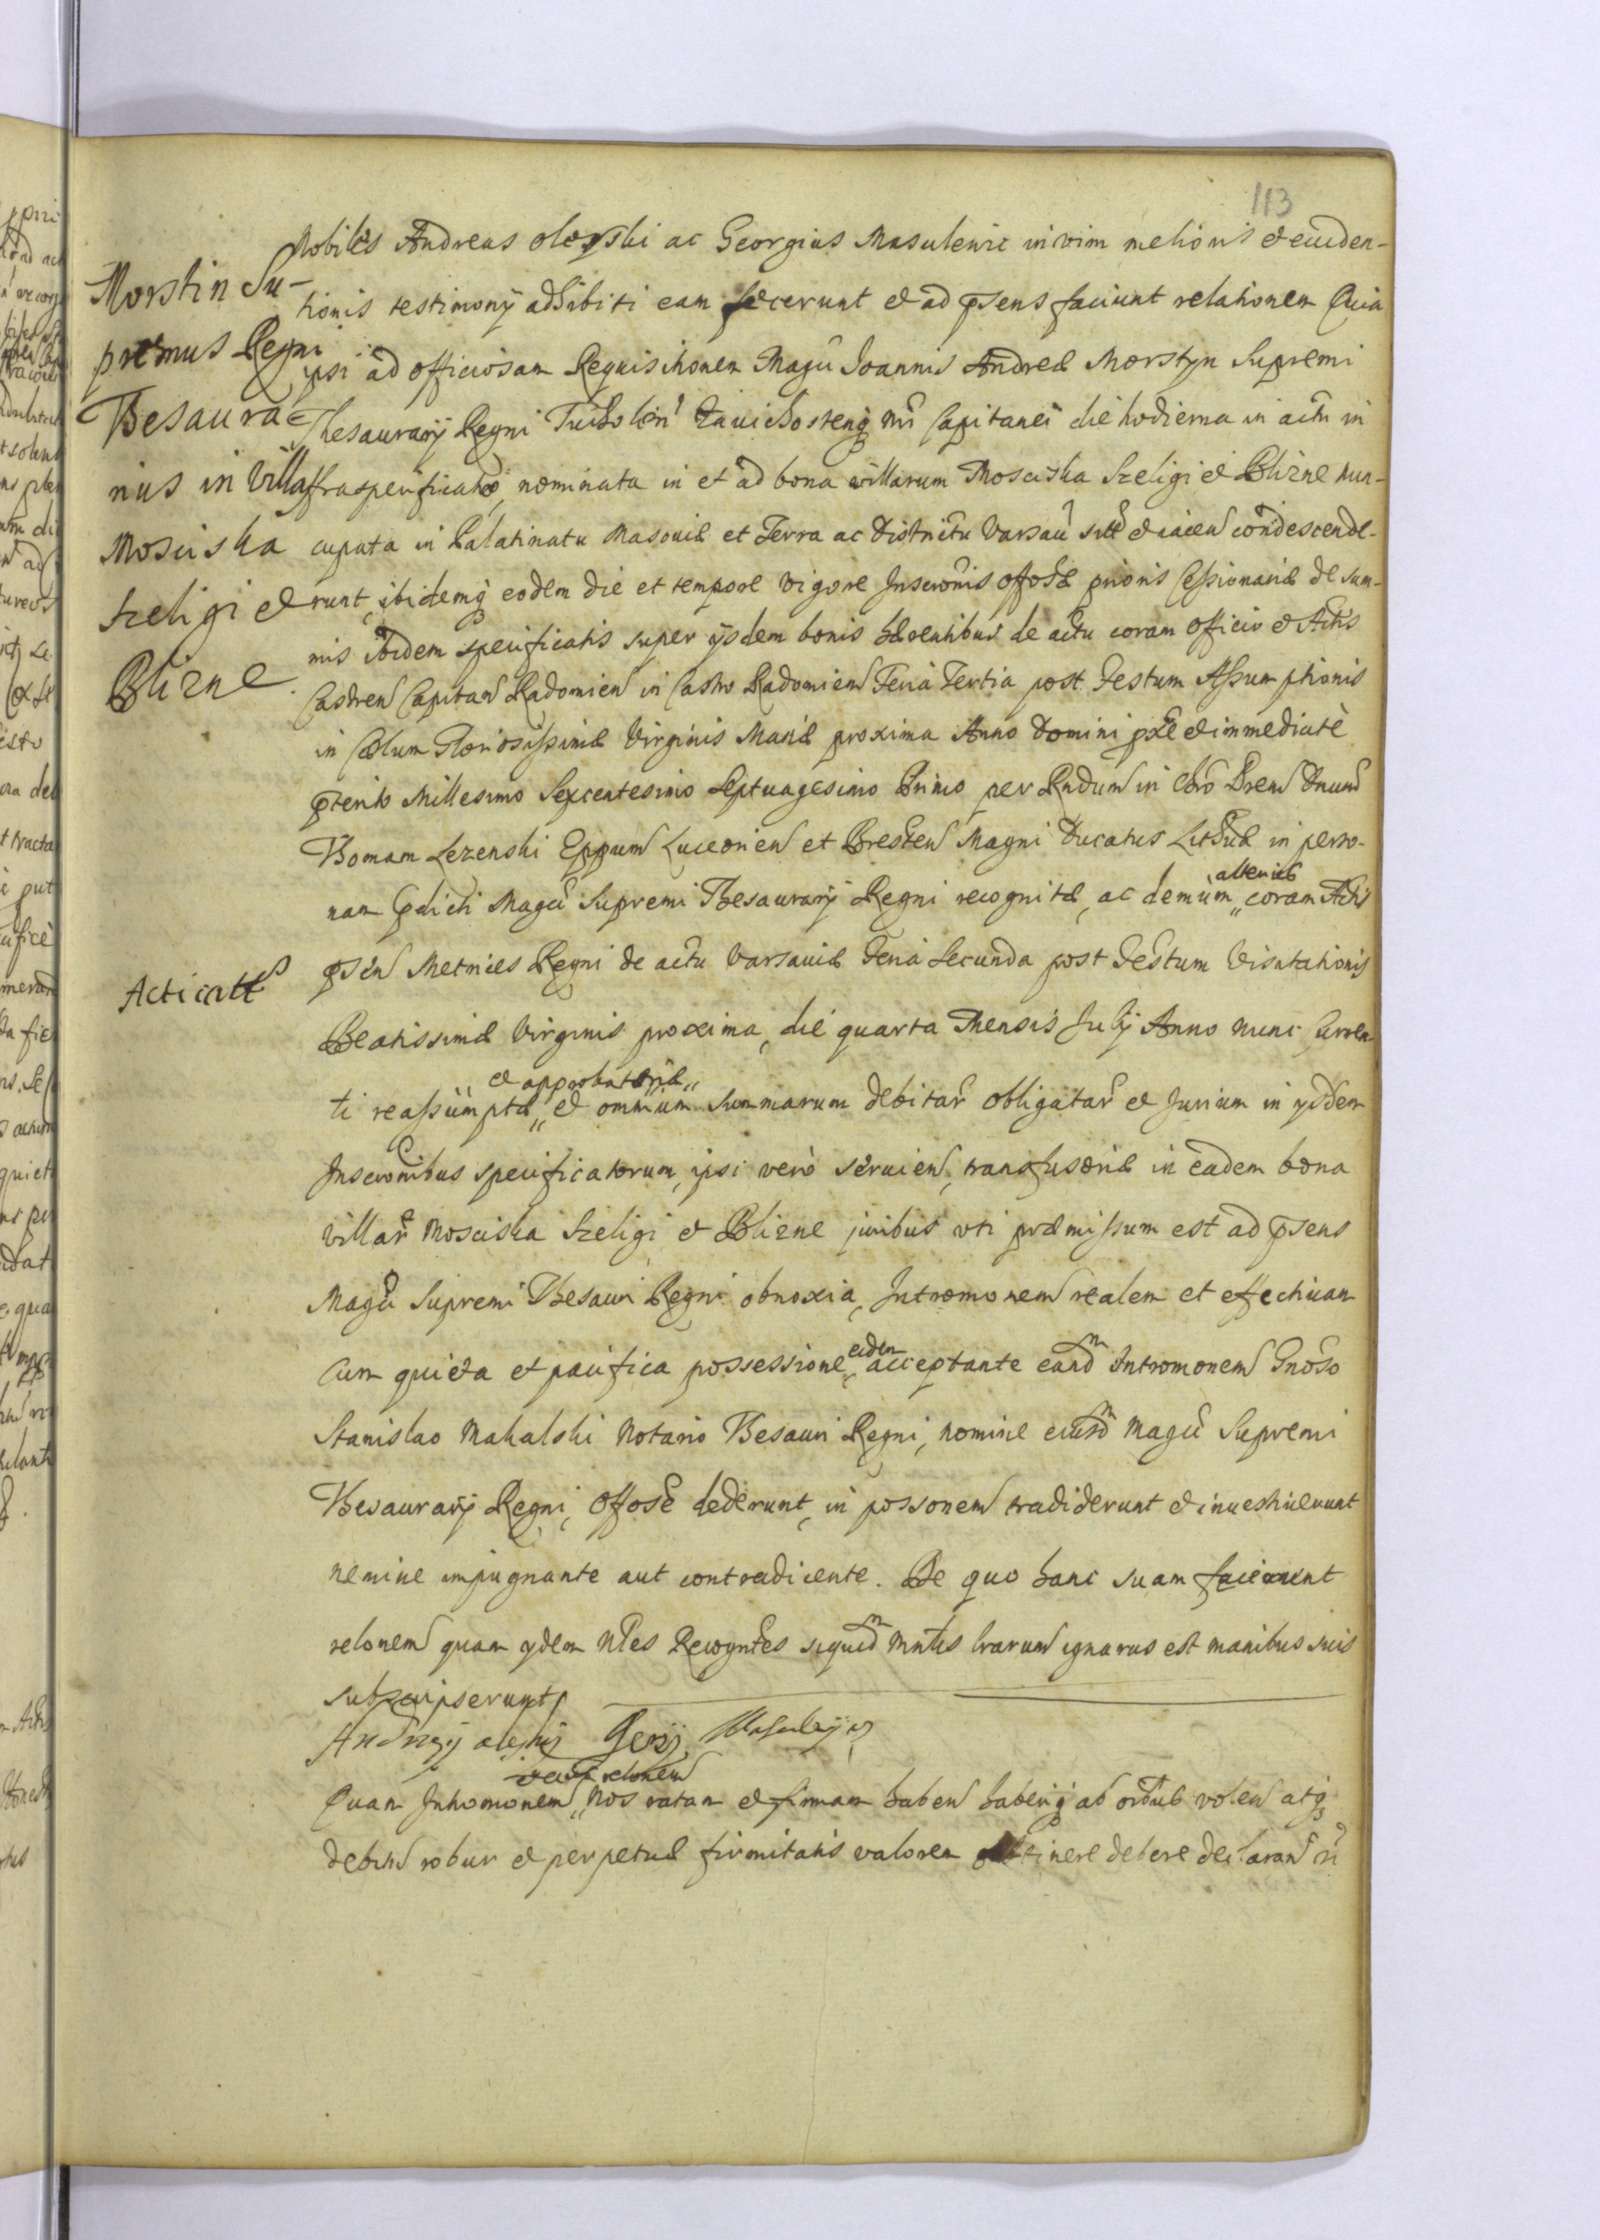 113
Morstin Su-
premus Regni
Thesaura-
rius in Villas
Mosciska
Szeligi et
Blizne
Nobiles Andreas Oleski ac Georgius Masulewic in vim melioris et euiden-
tionis testimony adhibiti eam fecerunt et ad psens faciunt relationem Quia
ipsi ad officiosam Requisitionem Magci Joannis Andreæ Morstyn Supremi
Thesaurarij Regni Tucholien Zauichostenq mri Capitanei die hodierna in actu in
fraspecificato, nominata in et ad bona villarum Mosciska Szeligi et Blizne nun-
cupata in Palatinatu Masouiæ et Terra ac Districtu Varsauie sitt et iacen condescende-
runt, ibidemq eodem die et tempore vigore Inscronis offosæ prioris Cessionariæ de sum-
mis ibidem specificatis super ijsdem bonis hærentibus de actu coram Officio et Actis
Castren Capitan Radomien in Castro Radomien Feria Tertia post Festum Assumptionis
in Cælum Gloriosissimæ Virginis Mariæ proxima Anno Domini pxe et immediatè
pterito Millesimo Sexcentesimo Septuagesimo Primo per Rndum in Chro Prem Dnum
Thomam Lezenski Eppum Luceorien et Bresten Magni Ducatus Lithuæ in perso-
nam pdicti Magci Supremi Thesaurarij Regni recognitæ, ac demum coram Actis
Acticatt
psen Metrices Regni de actu Varsauiæ Feria Secunda post Festum Visitationis
Beatissimæ Virginis proxima, die quarta Mensis July Anno nunc Curren
et approbatoriæ
ti reassumptæ et omnium summarum debitar obligatar et Jurium in ijsdem
Inscronibus specificatorum, ipsi vero seruien, transfusoriæ in eadem bona
villar Mosciska Szeligi et Blizne juribus vti præmissum est ad psens
Magci Supremi Thesauri Regni obnoxia, Intromonem realem et effectiuam
Cum quieta et pacifica possessione eidem acceptante eand Intromonem Gnoso
Stanislao Makalski Notario Thesauri Regni, nomine eiusd Magci Supremi
Thesaurarij Regni, Offose dederunt, in possonem tradiderunt et inuestiuerunt
nemine impugnante aut contradicente. De quo hanc suam faciunt
relonem quam ydem Nles Recogntes siquid Mnlis lrarum ignarus est manibus suis
subscripserunt
Andrzy oleski Jerzij
Quam Intromonem Nos ratam et firmam haben haberiq ab omnibus volen atq
debitum robur et perpetuæ firmitatis valorem obtinere debere declaran